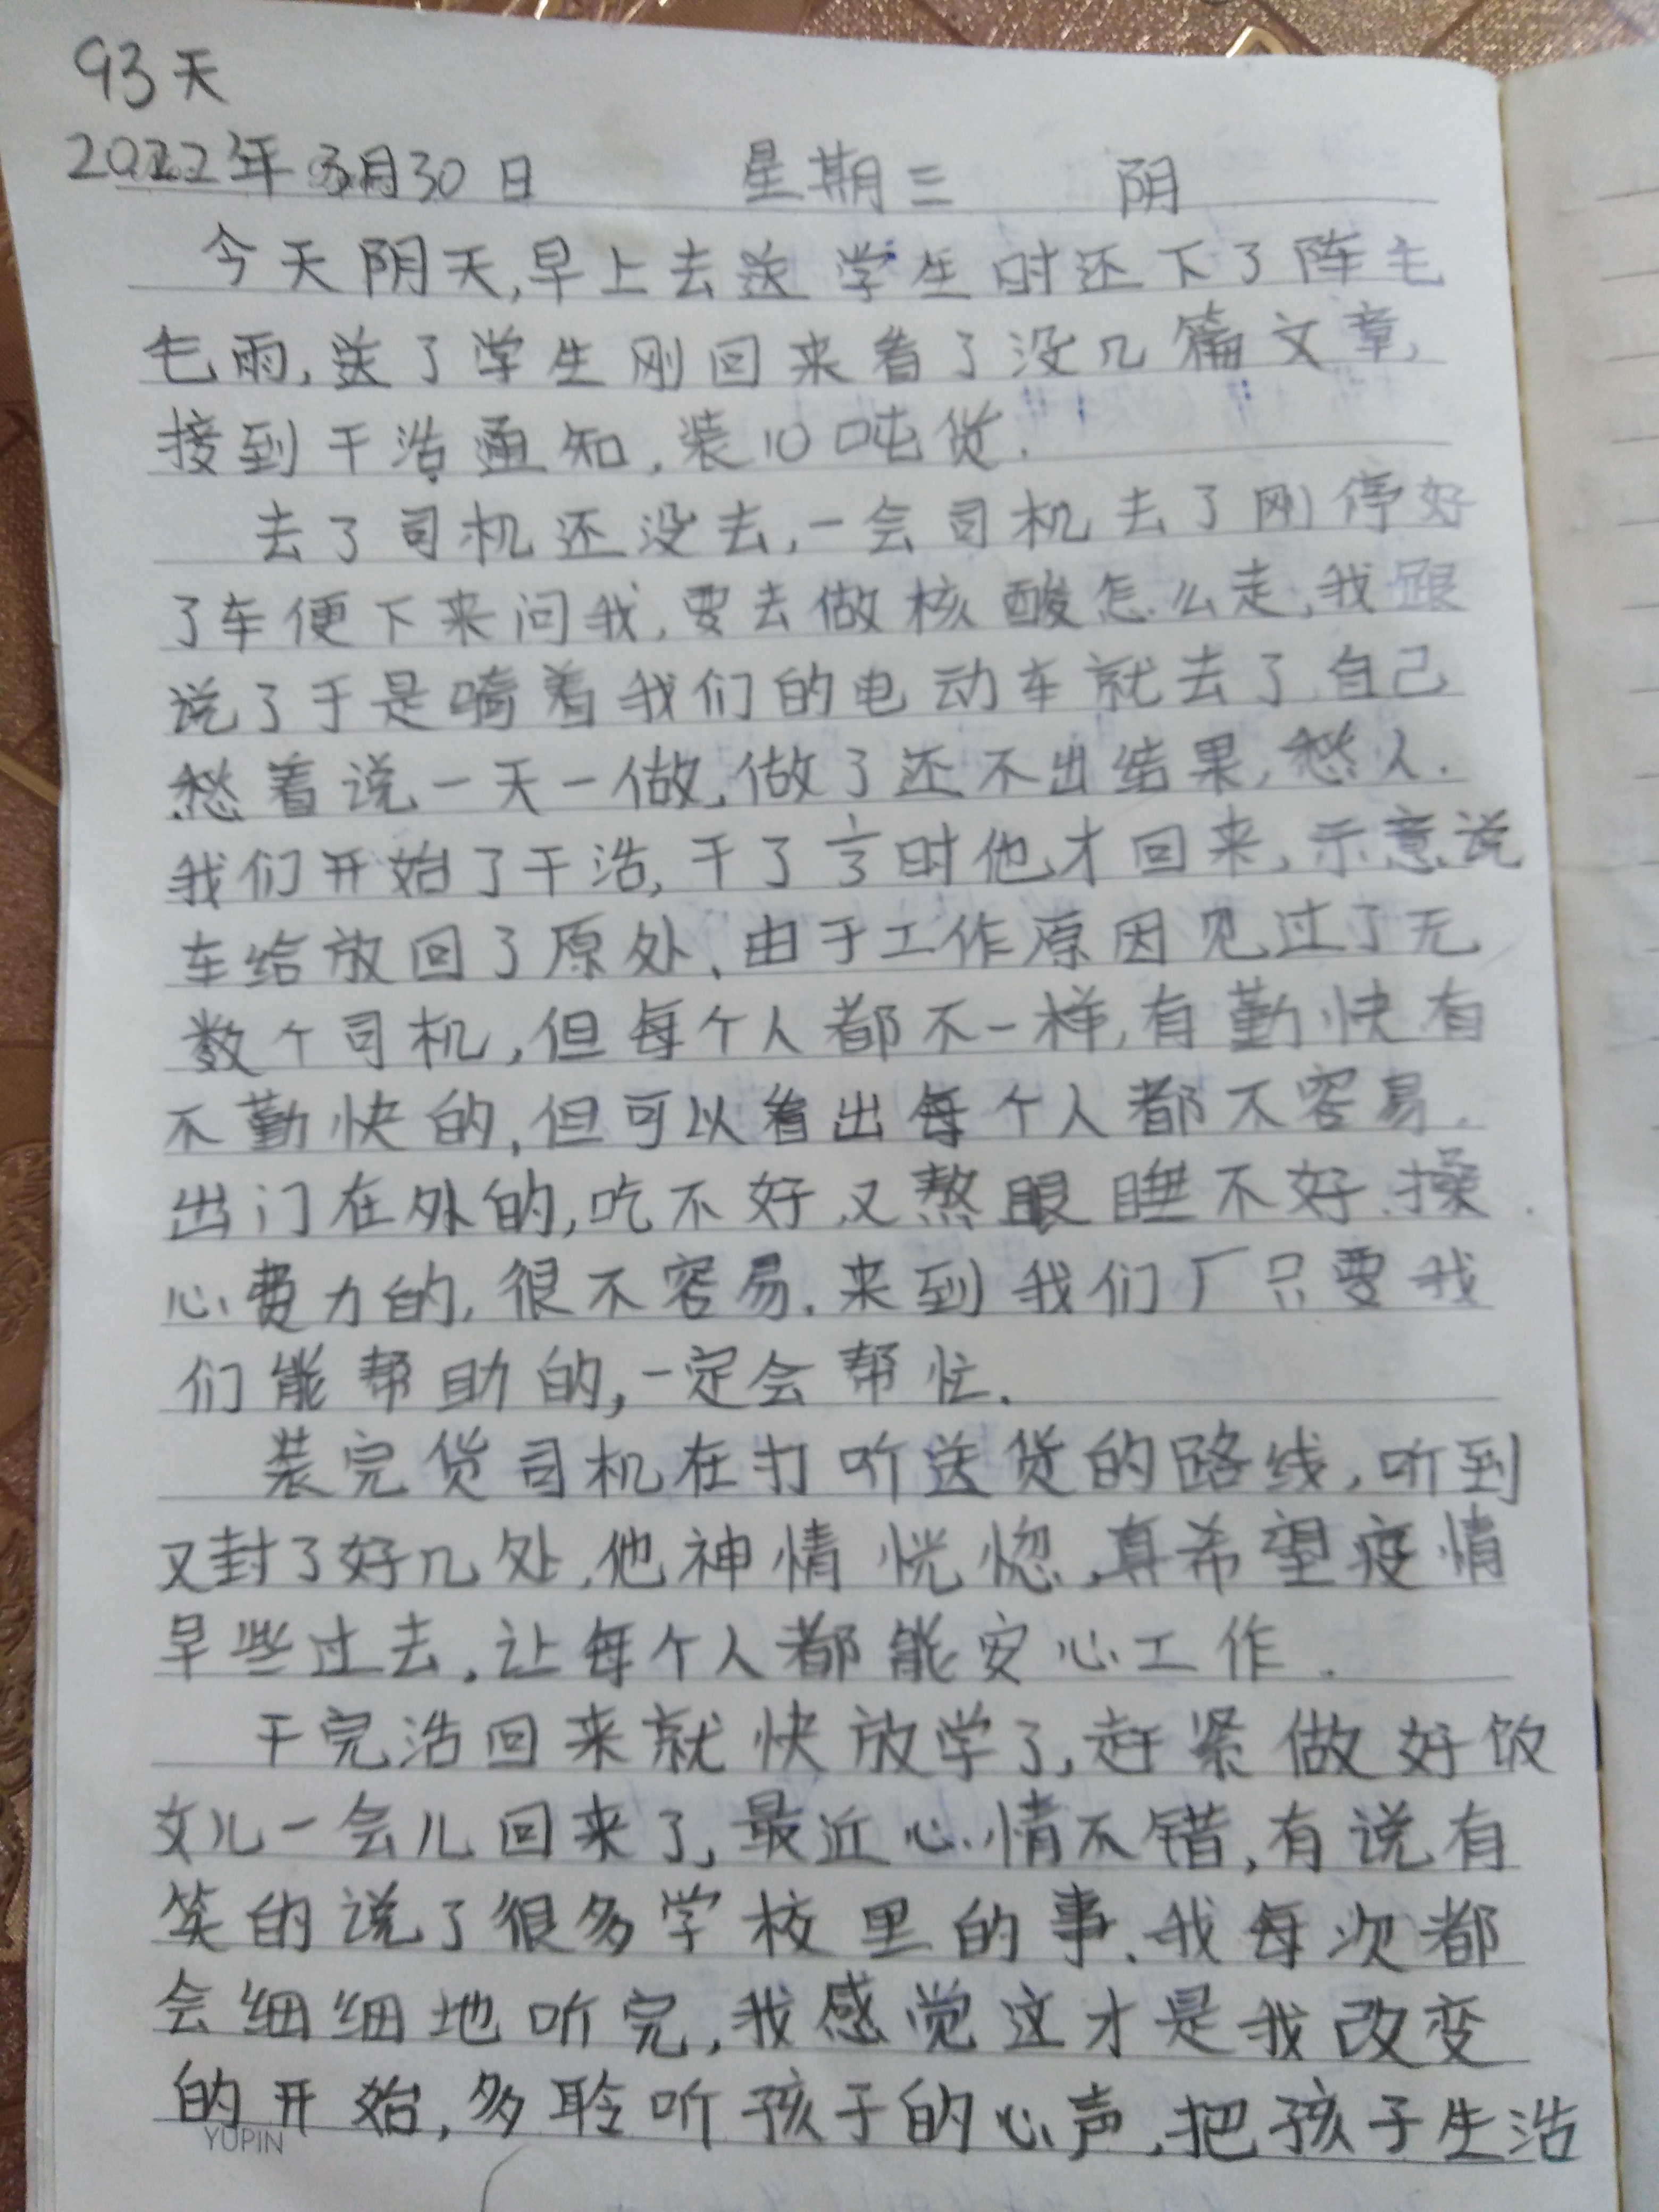 93天
2022年3月30日 星期三 阴
今天阴天,早上去送学生时还下了阵毛
毛雨,送了学生刚回来看了没几篇文章,
接到干活通知,装10吨货.
去了司机还没去,一会司机去了刚停好
了车便下来问我,要去做核酸怎么走,我跟
说了于是骑着我们的电动车就去了自己
愁着说一天一做,做了还不出结果,愁人.
我们开始了干活,干了 时他才回来,示意说
车给放回了原处,由于工作原因见过了无
数个司机,但每个人都不一样,有勤快有
不勤快的,但可以看出每个人都不容易.
出门在外的,吃不好又熬眼睡不好.操
心费力的,很不容易.来到我们厂只要我
们能帮助的,一定会帮忙.
装完货司机在打听送货的路线,听到
又封了好几处,他神情恍惚,真希望疫情
早些过去,让每个人都能安心工作.
干完活回来就快放学了,赶紧做好饭
女儿一会儿回来了,最近心情不错,有说有
笑的说了很多学校里的事.我每次都
会细细地听完,我感觉这才是我改变
的开始,多聆听孩子的心声,把孩子生活
YUPIN